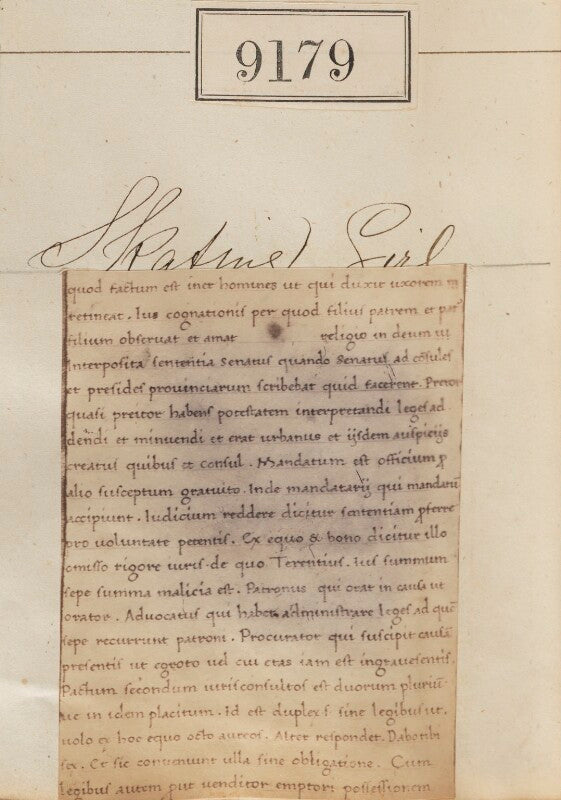 9179
Skating Girl
quod factum est inter homines ut qui duxit uxorem
retineat. Ius cognationis per quod filius patrem et pat
filium observat et amat religio in deum ut
interposita sententia Senatus quando Senatus ad cōsules
et presides provinciarum scribebat quid facerent. Pretor
quasi preitor habens potestatem interpretandi leges ad
dēdi et minuendi et erat urbanus et iisdem auspicijs
creatus quibus et consul. Mandatum est officium ꝓ
alio susceptum gratuito. Inde mandatarij qui mandatū
accipiunt. Iudicium reddere dicitur sententiam ꝓferre
pro voluntate petentis. Ex equo & bono dicitur illo
omisso rigore iuris de quo Terentius. Ius summum
sepe summa malicia est. Patronus qui orat in causa ut
orator. Advocatus qui habet administrare leges ad quē
sepe recurrunt patroni. Procurator qui suscipit causā
presentis ut egroto vel cui etas iam est ingravescentis.
Pactum secundum iurisconsultos est duorum pluriū
ue in idem placitum. Id est duplex s. sine legibus ut.
volo ex hoc equo octo aureos. Alter respondet. Dabo tibi
sex. Et sic conveniunt ulla sine obligatione. Cum
legibus autem put venditor emptori possessionem